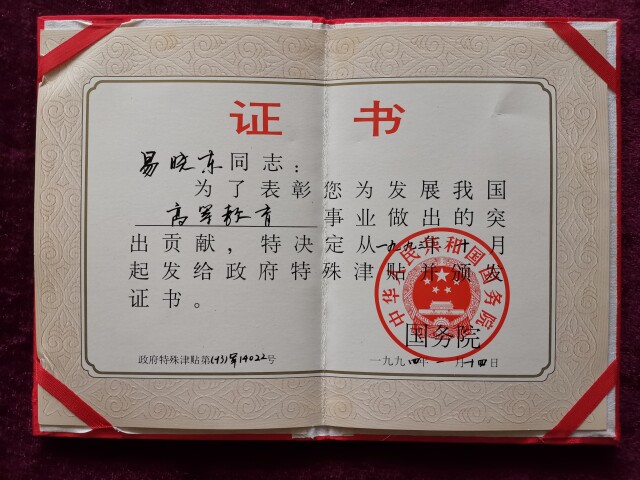 证 书
易晓东同志：
为了表彰您为发展我国
高等教育事业做出的突
出贡献，特决定从一九九三年十月
起发给政府特殊津贴并颁发
证书。
中华人民共和国国务院
国务院
政府特殊津贴第(93)军14022号
一九九四年一月十四日